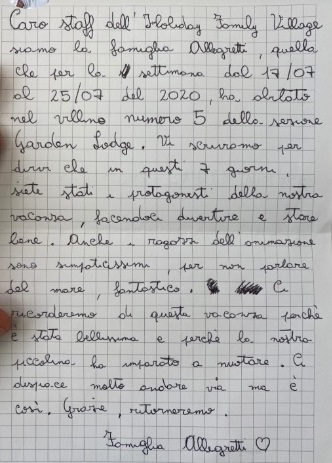 Caro staff dell'Holiday Family Village
siamo la famiglia Allegretti, quella
che per la settimana dal 17/07
al 25/07 del 2020, ha abitato
nel villino numero 5 della sezione
Garden Lodge. Vi scriviamo per
dirvi che in questi 7 giorni,
siete stati i protagonisti della nostra
vacanza, facendoci divertire e stare
bene. Anche i ragazzi dell'animazione
sono simpaticissimi, per non parlare
del mare, fantastico. Ci
ricorderemo di questa vacanza perchè
è stata bellissima e perchè la nostra
piccolina ha imparato a nuotare. Ci
dispiace molto andare via ma è
così. Grazie, ritorneremo.
Famiglia Allegretti ♡